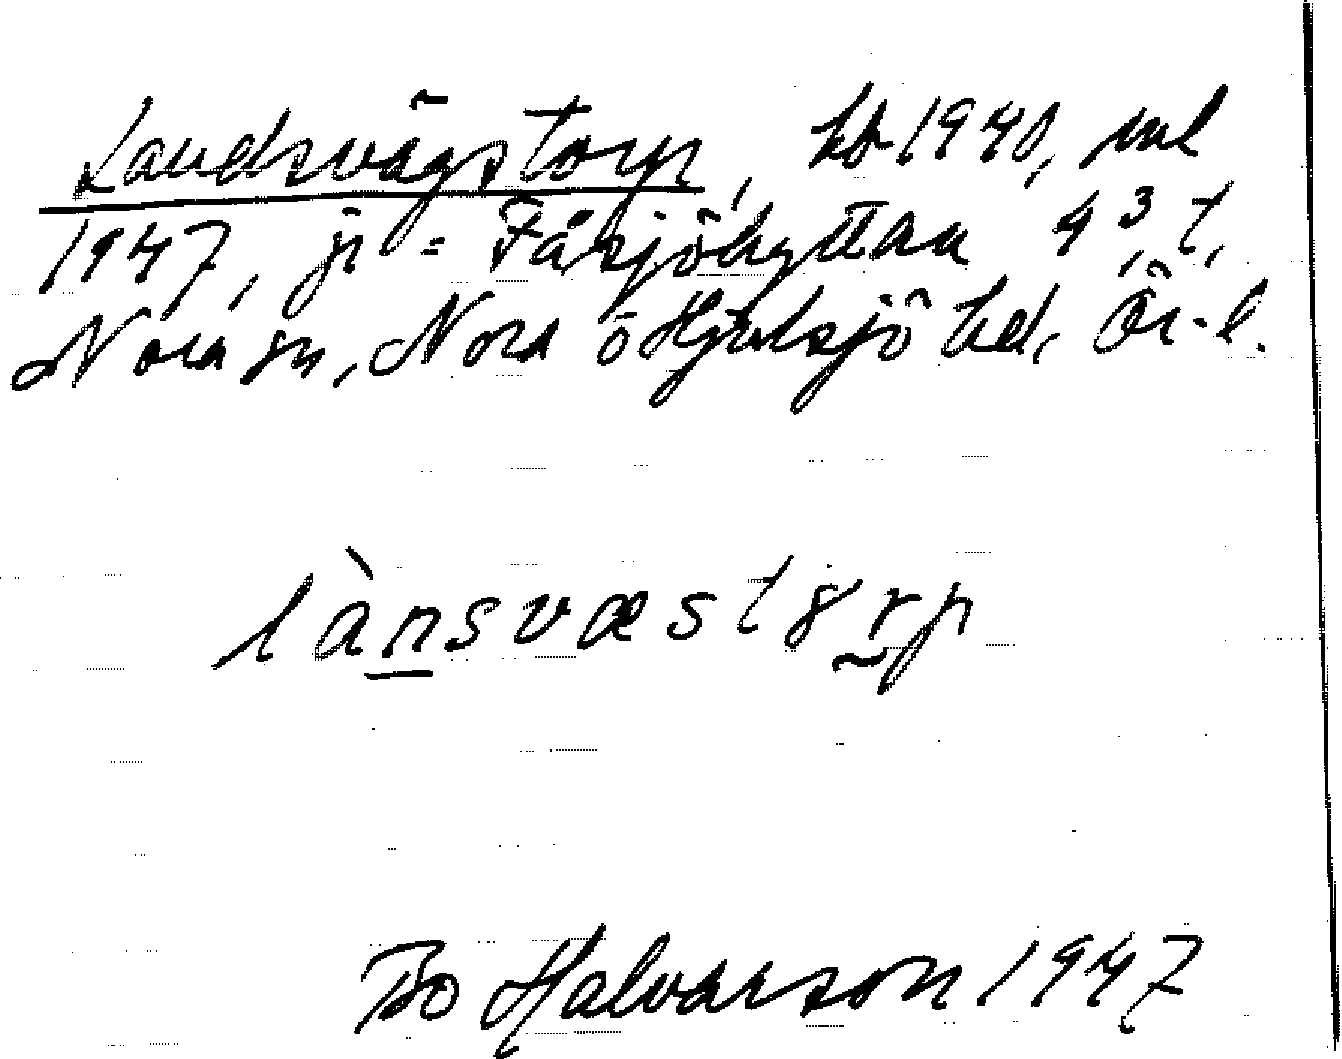 Landsvägstorp, hb 1940, ml
1947, ji = Fåsjöhyttan 4³, t,
Nora sn, Nora o Hjulsjö hd, Ör-l.
lànsvæstɤrp
Bo Halvarson 1947